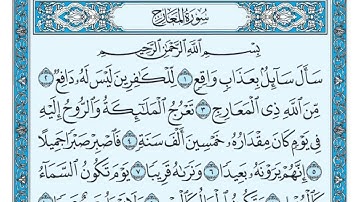 سُورَةُ المَعَارِجِ
بِسْمِ ٱللَّهِ ٱلرَّحْمَٰنِ ٱلرَّحِيمِ
سَأَلَ سَآئِلُۢ بِعَذَابٖ وَاقِعٖ ١ لِّلۡكَٰفِرِينَ لَيۡسَ لَهُۥ دَافِعٞ ٢
مِّنَ ٱللَّهِ ذِي ٱلۡمَعَارِجِ ٣ تَعۡرُجُ ٱلۡمَلَٰٓئِكَةُ وَٱلرُّوحُ إِلَيۡهِ
فِي يَوۡمٖ كَانَ مِقۡدَارُهُۥ خَمۡسِينَ أَلۡفَ سَنَةٖ ٤ فَٱصۡبِرۡ صَبۡرٗا جَمِيلًا
٥ إِنَّهُمۡ يَرَوۡنَهُۥ بَعِيدٗا ٦ وَنَرَىٰهُ قَرِيبٗا ٧ يَوۡمَ تَكُونُ ٱلسَّمَآءُ